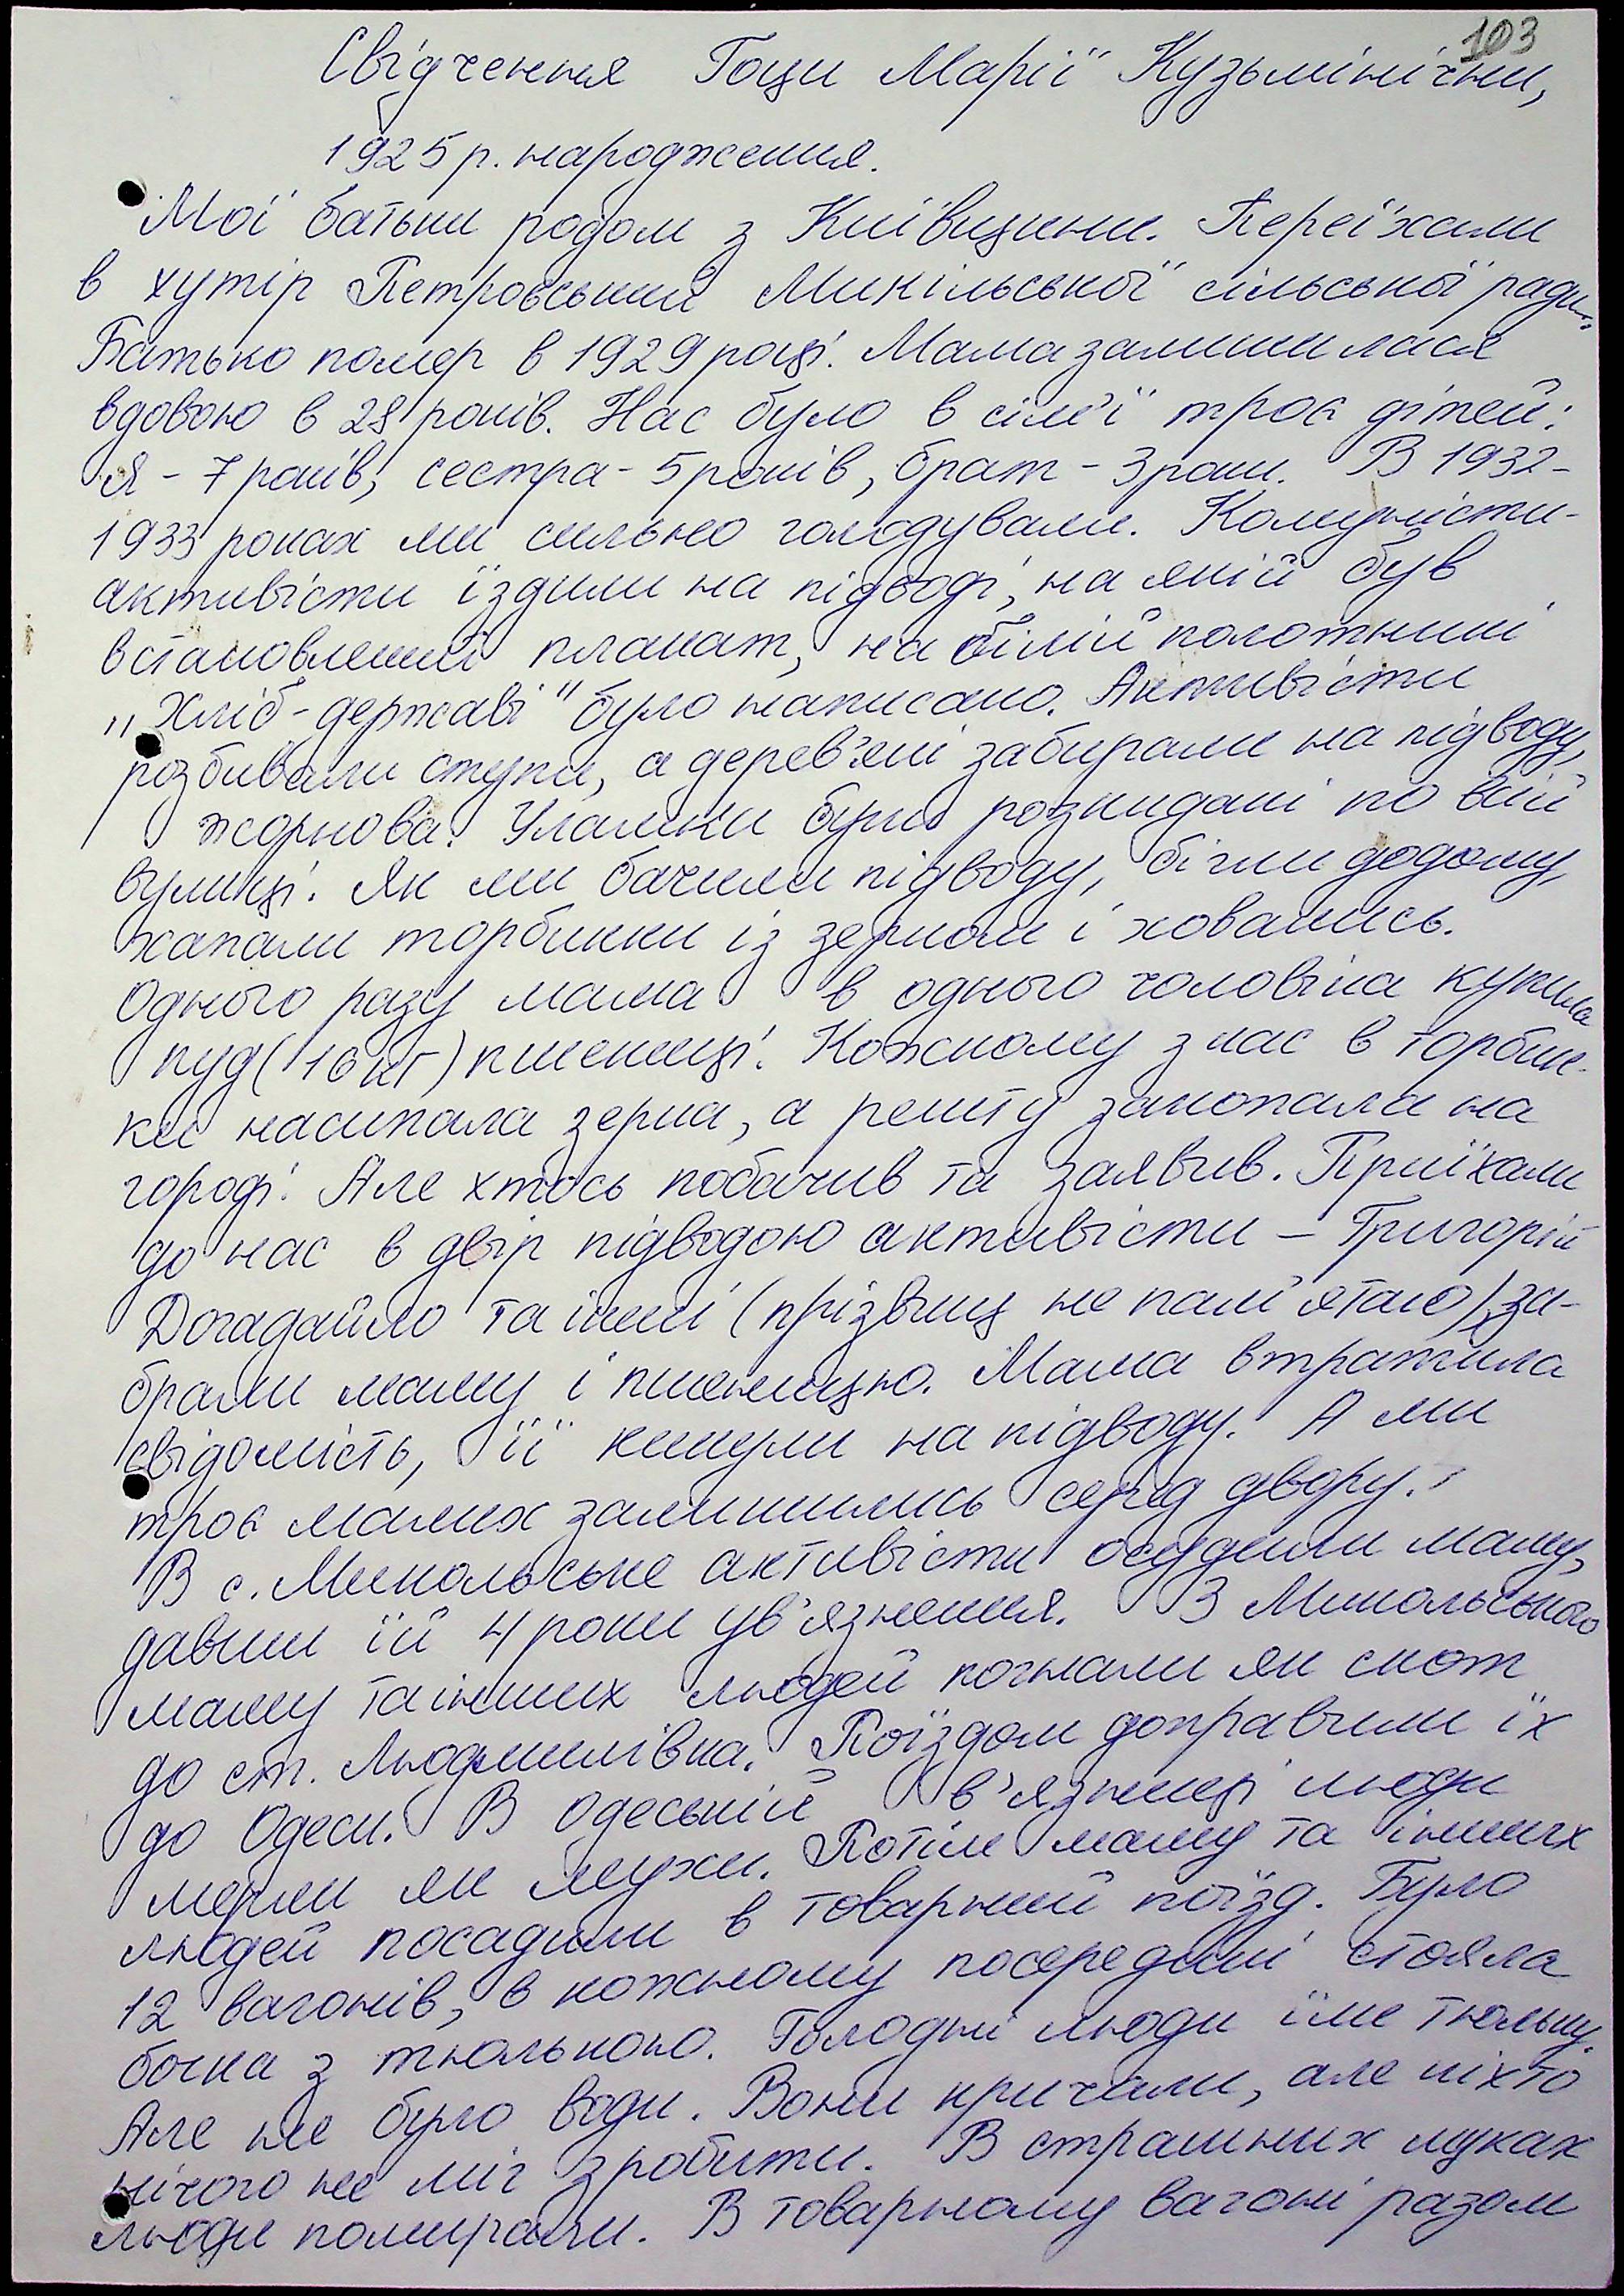 103
Свідчення Гоци Марії Кузьмінічни,
1925 р. народження.
Мої батьки родом з Київщини. Переїхали
в хутір Петровський Микільської сільської ради.
Батько помер в 1929 році. Мама залишилася
вдовою в 28 років. Нас було в сім'ї троє дітей:
я - 7 років, сестра - 5 років, брат - 3 роки. В 1932-
1933 роках ми сильно голодували. Комуністи-
активісти їздили на підводі, на якій був
встановлений плакат, на білій полотнині
„Хліб - державі" було написано. Активісти
розбивали ступи, а дерев'яні забирали на підводу,
жорнова. Уламки були розкидані по всій
вулиці. Як ми бачили підводу, бігли додому,
хапали торбинки із зерном і ховались.
Одного разу мама в одного чоловіка купила
пуд (16 кг) пшениці. Кожному з нас в торбин-
ки насипала зерна, а решту закопала на
городі. Але хтось побачив та заявив. Приїхали
до нас в двір підводою активісти - Григорій
Догадайло та інші (прізвищ не пам'ятаю), за-
брали маму і пшеницю. Мама втратила
свідомість, її кинули на підводу. А ми
троє малих залишились серед двору.
В с. Микольське активісти осудили маму,
давши їй 4 роки ув'язнення. З Микольського
маму та інших людей погнали як скот
до ст. Людмилівка. Поїздом доправили їх
до Одеси. В Одеській в'язниці люди
мерли як мухи. Потім маму та інших
людей посадили в товарний поїзд. Було
12 вагонів, в кожному посередині стояла
бочка з тюлькою. Голодні люди їли тюльку.
Але не було води. Вони кричали, але ніхто
нічого не міг зробити. В страшних муках
люди помирали. В товарному вагоні разом